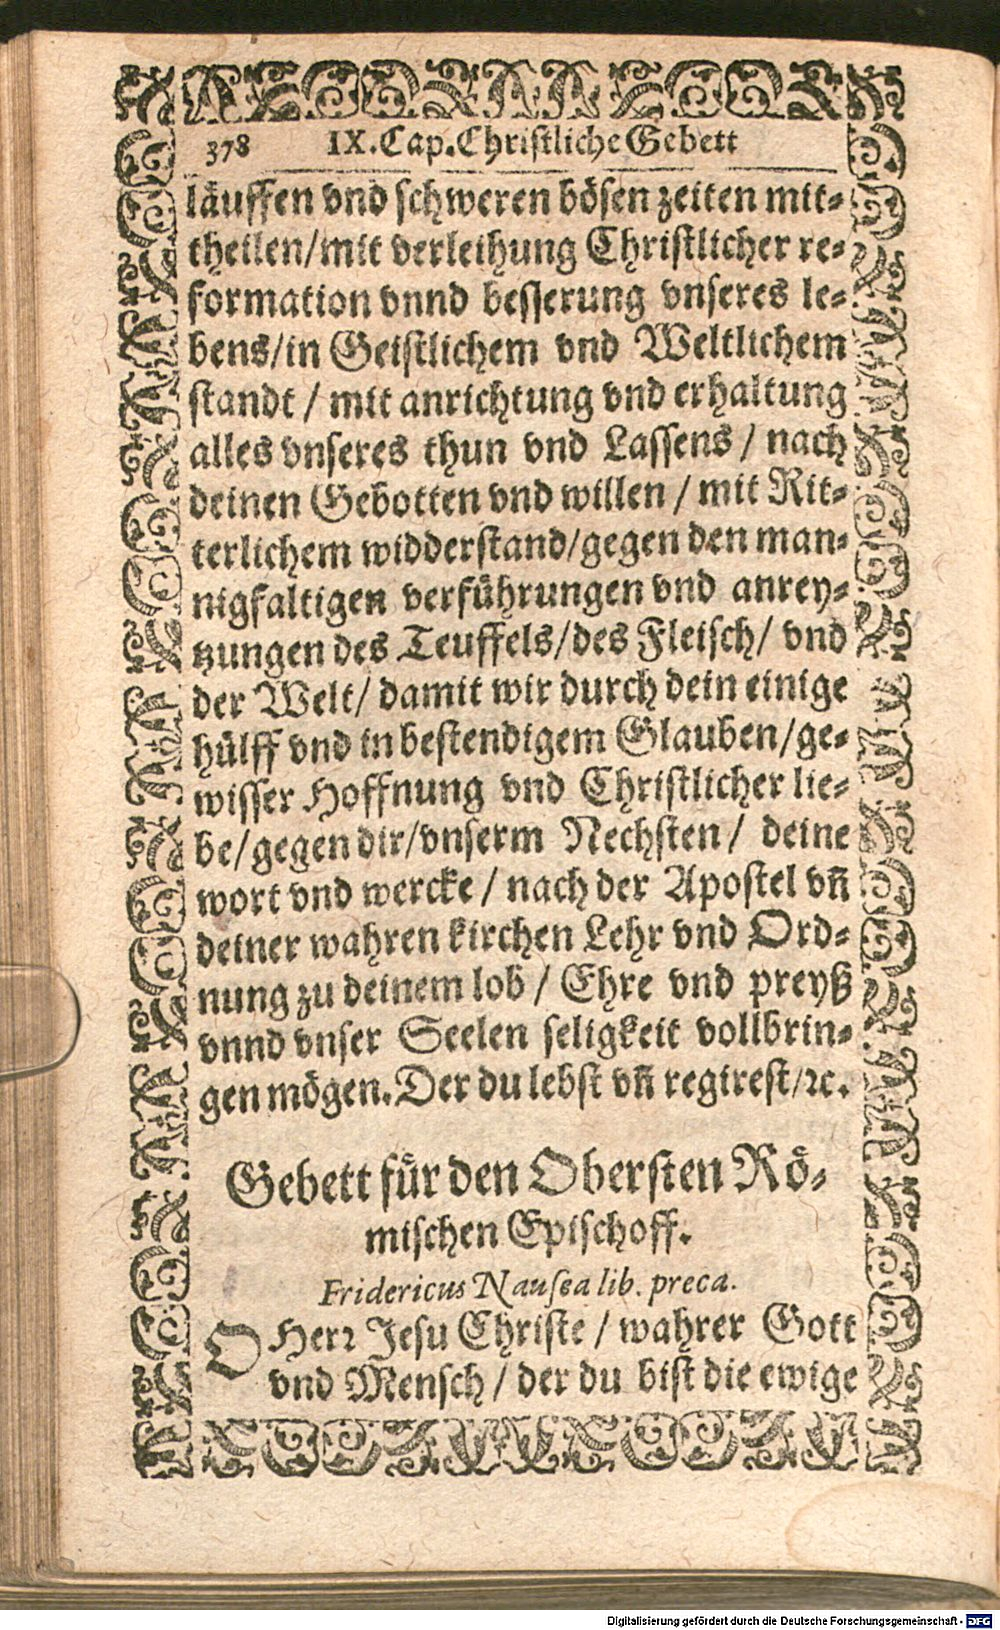 378 IX. Cap. Christliche Gebett
läuffen vnd schweren bösen zeiten mit-
theilen/mit verleihung Christlicher re-
formation vnnd besserung vnseres le-
bens/in Geistlichem vnd Weltlichem
standt / mit anrichtung vnd erhaltung
alles vnseres thun vnd Lassens / nach
deinen Gebotten vnd willen / mit Rit-
terlichem widderstand/gegen den man-
nigfaltigen verführungen vnd anrey-
tzungen des Teuffels/des Fleisch/ vnd
der Welt/ damit wir durch dein einige
hülff vnd in bestendigem Glauben/ge-
wisser Hoffnung vnd Christlicher lie-
be/gegen dir/vnserm Nechsten / deine
wort vnd wercke / nach der Apostel vn̄
deiner wahren kirchen Lehr vnd Ord-
nung zu deinem lob / Ehre vnd preyß
vnnd vnser Seelen seligkeit vollbrin-
gen mögen. Der du lebst vn̄ regirest/ꝛc.
Gebett für den Obersten Rö-
mischen Epischoff.
Fridericus Nausea lib. preca.
O Herꝛ Jesu Christe / wahrer Gott
vnd Mensch / der du bist die ewige
Digitalisierung gefördert durch die Deutsche Forschungsgemeinschaft - DFG